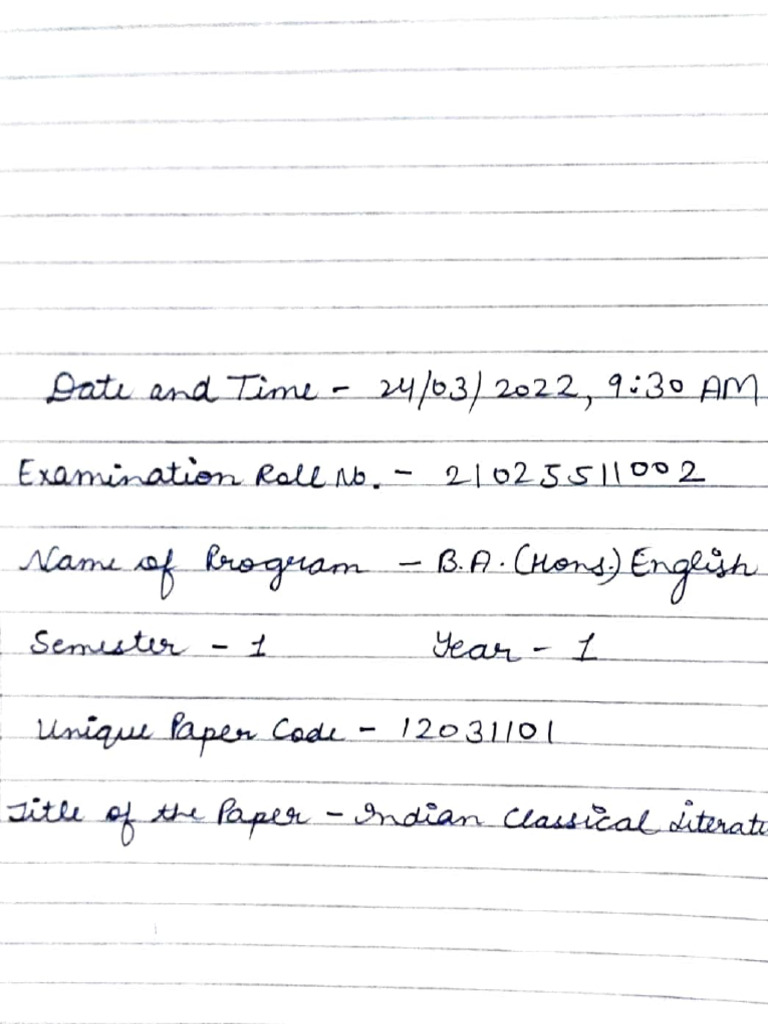 Date and Time - 24/03/2022, 9:30 AM
Examination Roll No. - 21025511002
Name of Program - B.A. (Hons.) English
Semester - 1 Year - 1
Unique Paper Code - 12031101
Title of the Paper - Indian Classical Literatu